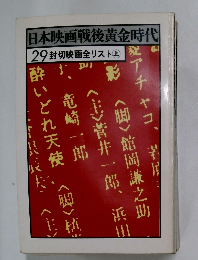 日本映画戦後黄金時代
29 封切映画全リスト上
愛アチャコ、
〈脚〉館岡謙之助
影
〈主〉菅井一郎、浜田
竜崎一郎
〈脚〉植
酔いどれ天使
〈主〉